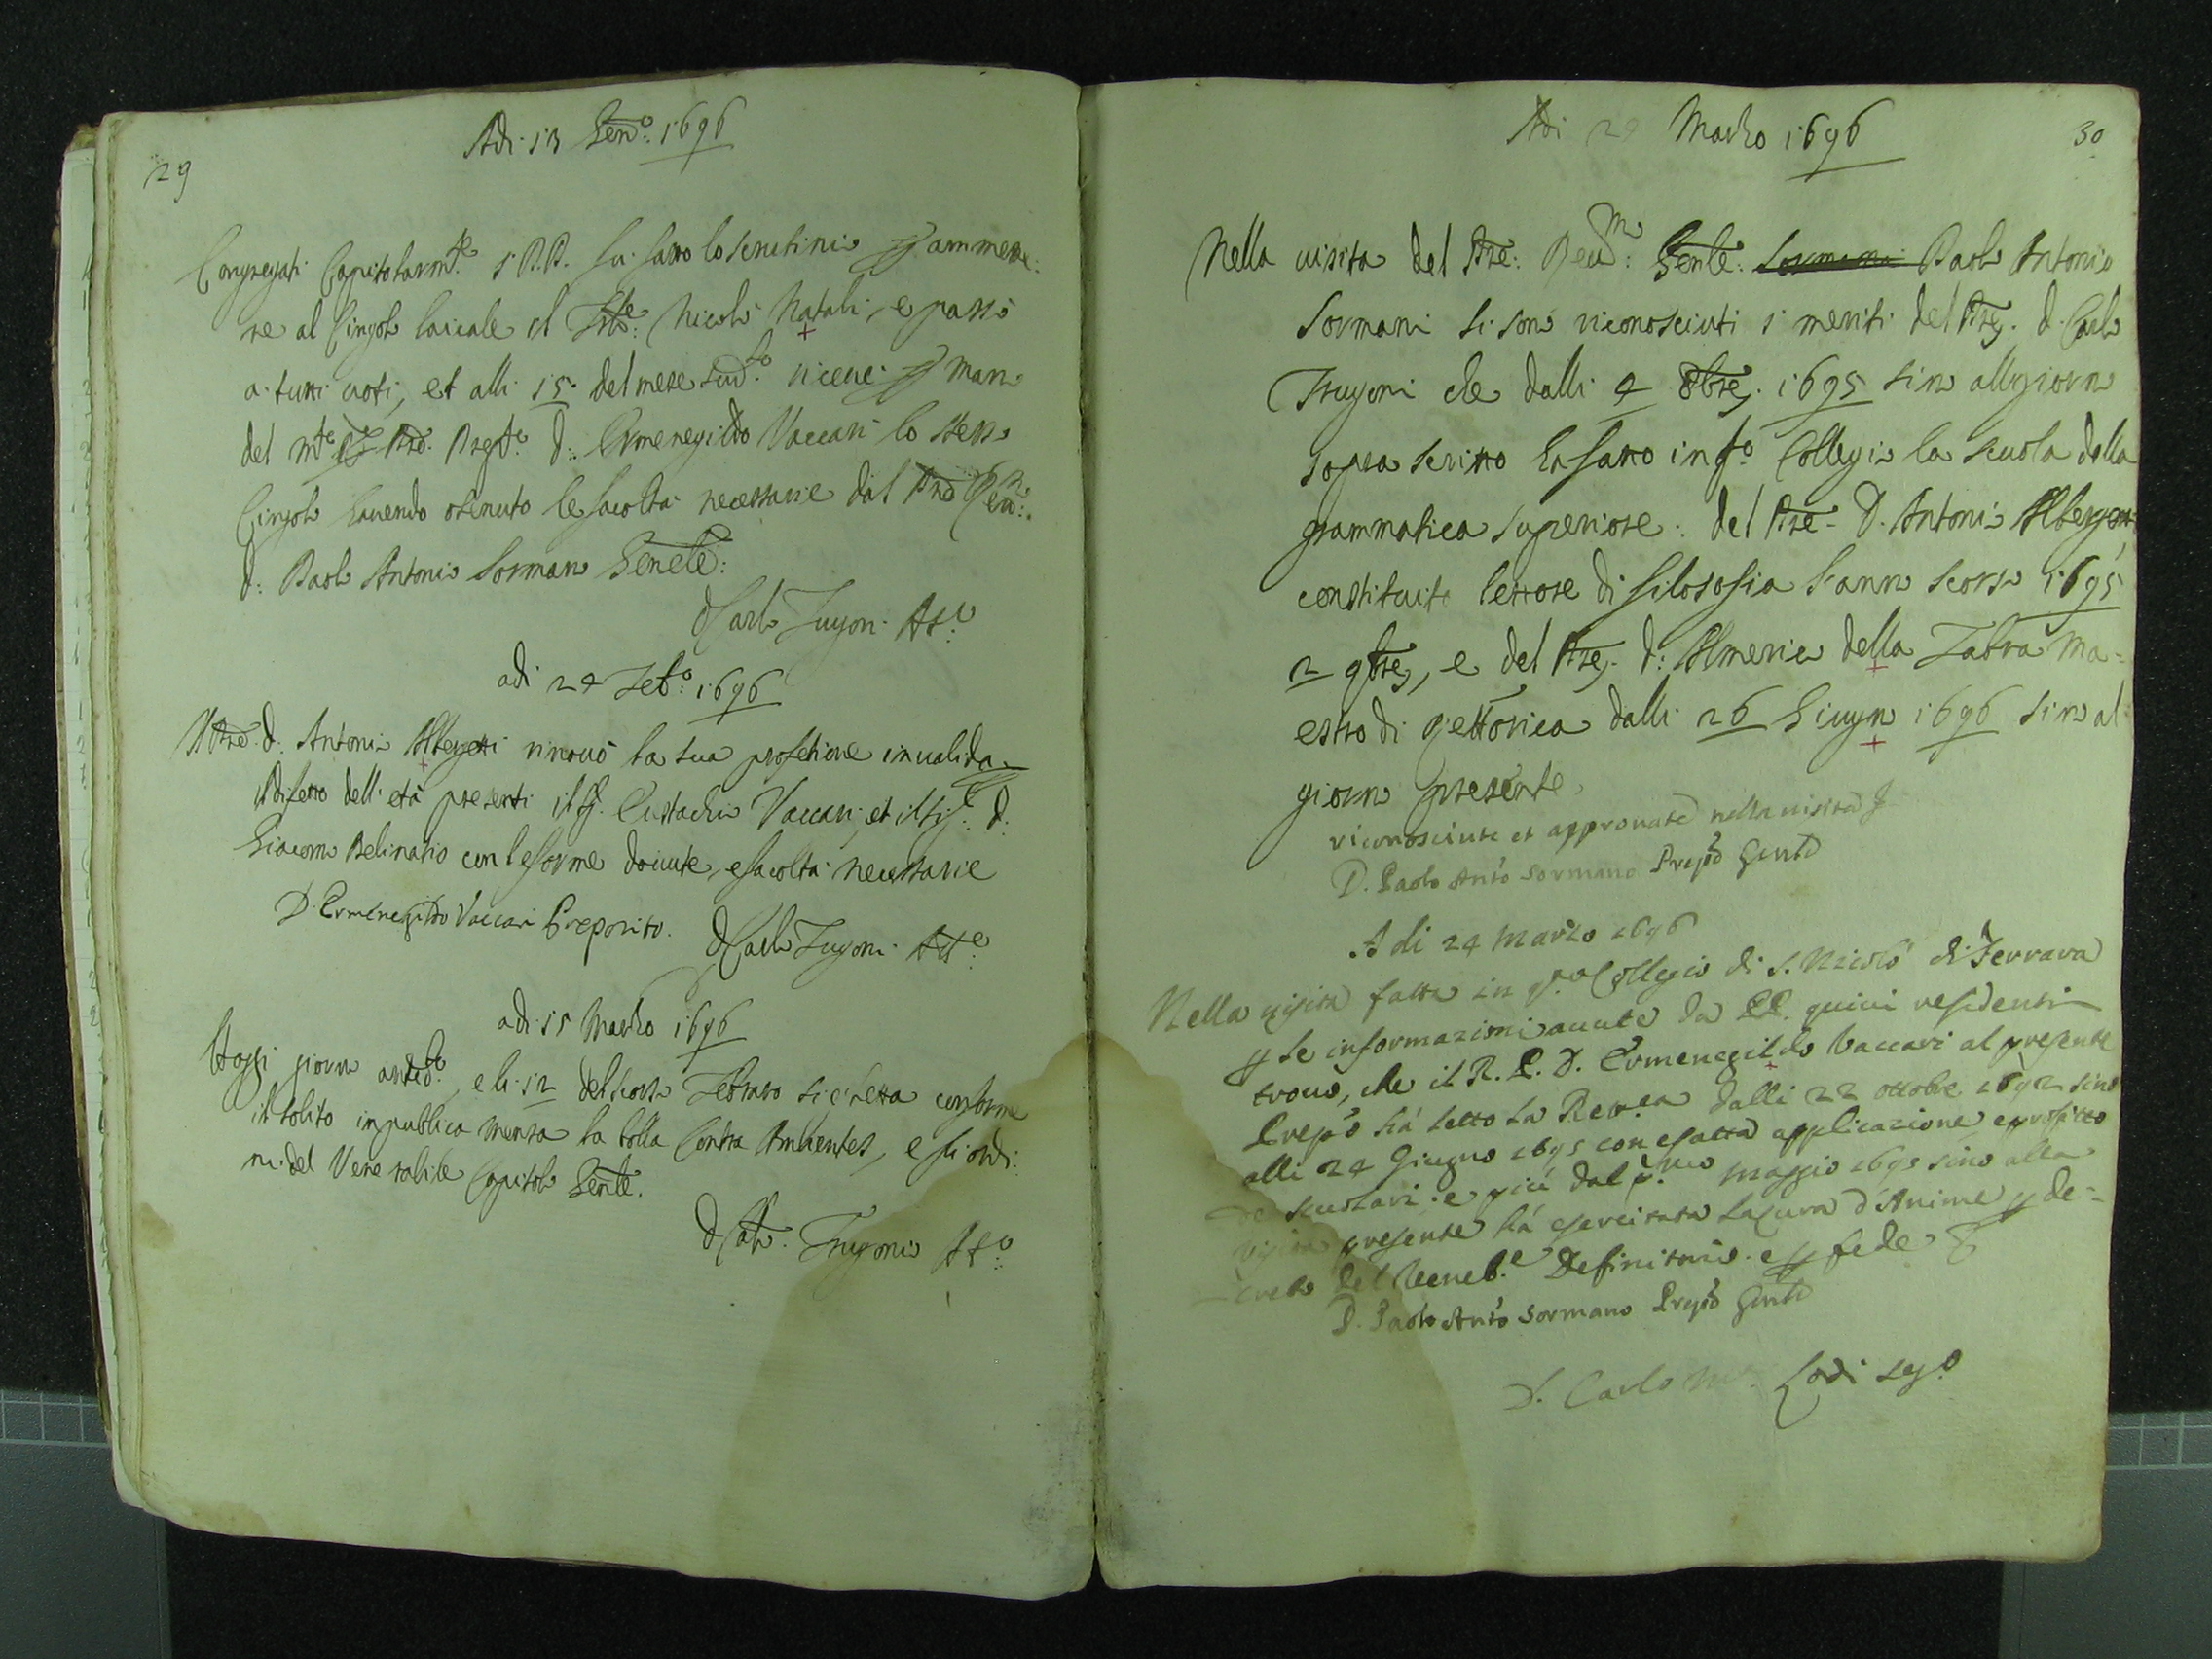 29
Adi 13 Gen.o 1696
Congregati Capitolarm.te i P.P. fu fatto lo scrutinio p ammette:
re al Cingolo laicale il Frte: Nicolò Natali, e passò
a tutti voti, et alli 15 del mese sud.o riceué p mano
del M.to Pre Prep.to D. Ermenegildo Vaccari lo stesso
Cingolo hauendo otenuto le facoltà necessarie dal Pre Reu.mo
D: Paolo Antonio Sormano Genele:
D Carlo Frugoni Att.o
adi 24 Feb.o 1696
Il Pre D. Antonio Albergetti rinouò la sua professione inualida
p difetto dell'età presenti il Sig. Eustachio Vaccari, et il Sig.r D.
Giacomo Belinatio con le forme douute, e facoltà necessarie
D. Ermenegildo Vaccari Preposito. D Carlo Frugoni Att.o
adi 15 Marzo 1696
Hoggi giorno anted.o, e li 12 del scorso Febraro si è letta conforme
il solito in publica mensa la bolla Contra Ambientes, e gli ordi:
ni del Venerabile Capitolo Genle.
D Carlo Frugoni Att.o
30
Adi 24 Marzo 1696
Nella uisita del Pre: Reud.mo Genle: Paolo Antonio
Sormani si sono riconosciuti i meriti del Pre. D. Carlo
Frugoni che dalli 4 8bre. 1695 sino all giorno
sopra scritto ha fatto in q.o Collegio la scuola della
grammatica superiore: del Pre. D. Antonio Albergetti
constituito lettore di filosofia l'anno scorso 1695
2 9bre, e del Pre. D: Almerico della Fabra Ma=
estro di Rettorica dalli 26 Giugno 1696 sino al
giorno presente.
riconosciute et approuate nella uisita
D. Paolo Ant.o Sormano Prep.o Genle
A di 24 Marzo 1696
Nella visita fatta in q.to Collegio di S. Nicolò di Ferrara
p le informazioni auute da PP. quiui residenti
trouo, che il R. P. D. Ermenegildo Vaccari al presente
Prep.o hà letto la Ret.ca dalli 22 ottobre 1692 sino
alli 24 Giugno 1695 con esatta applicazione e profitto
de scuolari: e più dal p.mo Maggio 1690 sino alla
visita presente hà esercitata la cura d'Anime p de=
creto del Veneb.e Definitorio. e p fede
D. Paolo Ant.o Sormano Prep.o Genle
D. Carlo M.a Lodi Seg.o